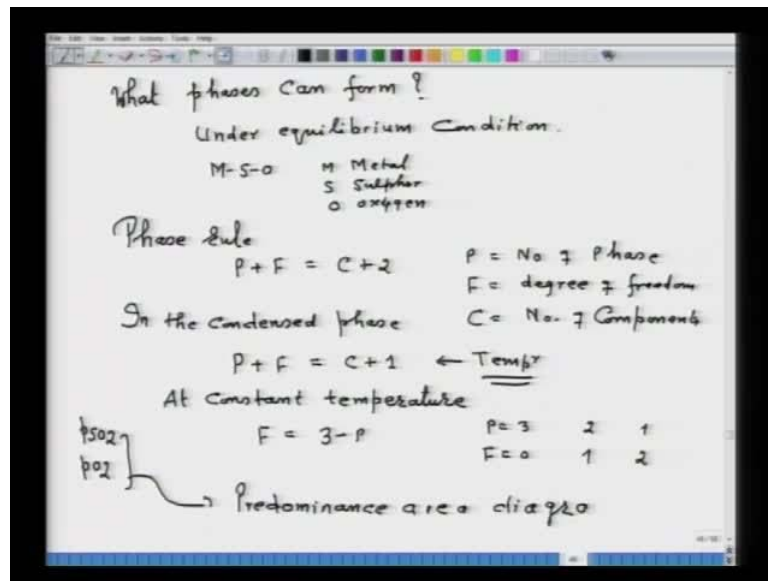 What phases can form ?
Under equilibrium Condition.
M-S-O M Metal
S Sulphor
O oxygen
Phase Rule
P + F = C+2 P = No of Phase
F = degree of freedom
In the condensed phase C = No. of Components
P + F = C+1 ← Tempr
At constant temperature
F = 3-P P= 3 2 1
F= 0 1 2
pSO2
pO2
→ Predominance area diagra